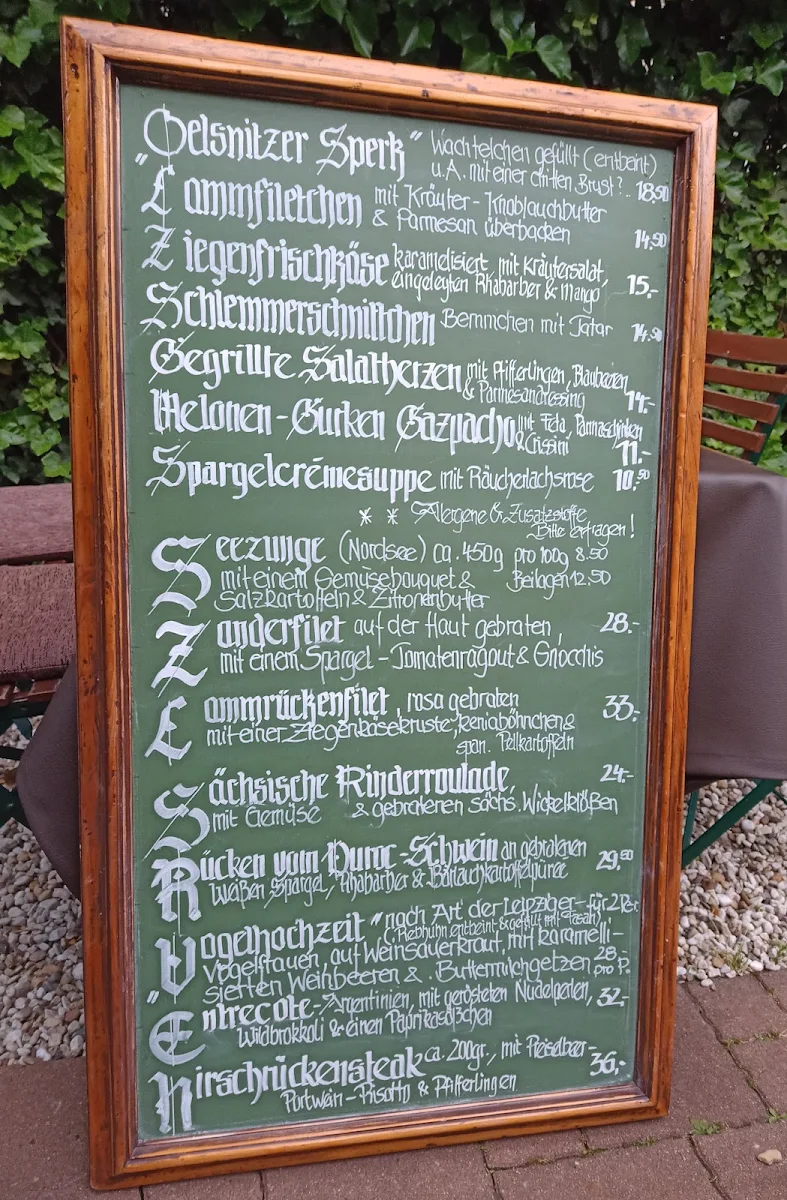 "Oelsnitzer Sperk" Wachtelchen gefüllt (entbeint)
u.A. mit einer dritten Brust?.. 18,90
Lammfiletchen mit Kräuter-Knoblauchbutter
& Parmesan überbacken 14,90
Ziegenfrischkäse karamelisiert, mit Kräutersalat,
eingelegten Rhabarber & Mango 15,-
Schlemmerschnittchen Bemmchen mit Tatar 14,90
Gegrillte Salatherzen mit Pfifferlingen, Blaubeeren
& Parmesandressing 14,-
Melonen-Gurken Gazpacho mit Feta, Parmaschinken
& Crissini 11,-
Spargelcrémesuppe mit Räucherlachsrose 10,50
* * Allergene & Zusatzstoffe
Bitte erfragen!
Seezunge (Nordsee) ca. 450g pro 100g 8.50
mit einem Gemüsebouquet & Beilagen 12,50
Salzkartoffeln & Zitronenbutter
Zanderfilet auf der Haut gebraten, 28.-
mit einem Spargel-Tomatenragout & Gnocchis
Lammrückenfilet, rosa gebraten 33,-
mit einer Ziegenkäsekruste, Keniaböhnchen &
span. Pellkartoffeln
Sächsische Rinderroulade, 24,-
mit Gemüse & gebratenen sächs. Wickelklößen
Rücken vom Duroc-Schwein an gebratenen 29,50
Weißen Spargel, Rhabarber & Bärlauchkartoffelpüree
"Vogelhochzeit" nach Art der Leipziger - für 2 Per.
(Rebhuhn entbeint & gefüllt mit Fasan),
Vogelfrauen, auf Weinsauerkraut, mit karamelli-
sierten Weinbeeren & Buttermilchgetzen 28,- pro P.
Entrecote-Argentinien, mit gerösteten Nudelperlen, 32,-
Wildbrokkoli & einen Paprikasößchen
Hirschrückensteak ca. 200gr., mit Preiselbeer- 36,-
Portwein-Risotto & Pfifferlingen